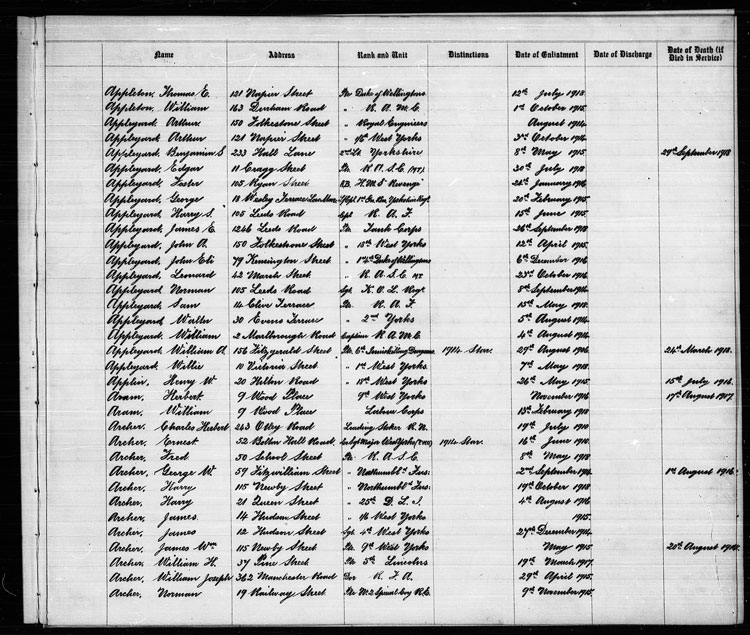 Name Address Rank and Unit Distinctions Date of Enlistment Date of Discharge Date of Death (if Died in Service)
Appleton, Thomas E. 121 Napier Street Pte Duke of Wellingtons 12th July 1918
Appleton, William 163 Durham Road " R. A. M. C. 1st October 1915
Appleyard, Arthur. 150 Folkestone Street " Royal Engineers August 1914
Appleyard, Arthur 121 Napier Street " West Yorks 3rd October 1914
Appleyard, Benjamin S 233 Hall Lane 2nd Lt Yorkshire 8th May 1915 29th September 1918
Appleyard, Edgar 11 Cragg Street Pte R. A. S. C. (M.T.) 30th July 1918
Appleyard, Foster 105 Ryan Street A.B. H.M.S Revenge January 1916
Appleyard, George 18 Wesley Terrace 20th February 1915
Appleyard, Harry S. 105 Leeds Road R. A. F. 15th June 1915
Appleyard, James E. 1246 Leeds Road Pte Tank Corps 26th September 1918
Appleyard, John A. 150 Folkestone Street " 18th West Yorks 12th April 1915
Appleyard, John Eli 79 Kensington Street " Duke of Wellingtons 6th December 1916
Appleyard, Leonard 42 March Street " R. A. S. C. M.T. 23rd October 1916
Appleyard, Norman 105 Leeds Road Sgt K. O. L. Regt 8th September 1914
Appleyard, Sam 14 Clive Terrace Pte R. A. F. 15th May 1918
Appleyard, Walter 30 Evens Terrace " 2nd Yorks 5th August 1914
Appleyard, William 2 Marlborough Road Captain R. A. M. C. 4th August 1914
Appleyard, William A. 156 Fitzgerald Street Pte 6th Inniskilling Dragoons 1914 Star. 29th August 1906 24th March 1918
Appleyard, Willie 10 Victoria Street " 1st West Yorks 7th May 1918
Applin, Henry W. 20 Hilton Road " 18th West Yorks 26th May 1915 15th July 1916
Aram, Herbert 9 Wood Place " 9th West Yorks November 1916 17th August 1917
Aram, William 9 Wood Place " Labour Corps 13th February 1918
Archer, Charles Herbert 243 Otley Road Leading Stoker R. N. 19th July 1910
Archer, Ernest 52 Bolton Hall Road West Yorks 1914 Star 16th June 1910
Archer, Fred 50 School Street Pte R. A. S. C. 8th May 1918
Archer, George W. 59 Fitzwilliam Street " Northumbln Fus. 2nd September 1914 1st August 1916
Archer, Harry 115 Newby Street " Northumbln Fus. 19th October 1918
Archer, Harry 21 Queen Street " 25th D. L. I. 4th August 1916
Archer, James. 14 Hudson Street " West Yorks 1915.
Archer, James 12 Hudson Street Sgt 4th West Yorks 27th December 1914
Archer, James Wm 115 Newby Street Pte 9th West Yorks May 1915 20th August
Archer, William H. 37 Pine Street Pte 5th Lincolns 19th March 1917
Archer, William Joseph 362 Manchester Road Dvr R. F. A. 29th April 1915
Archer, Norman 19 Railway Street Pte R.E. 9th November 1915